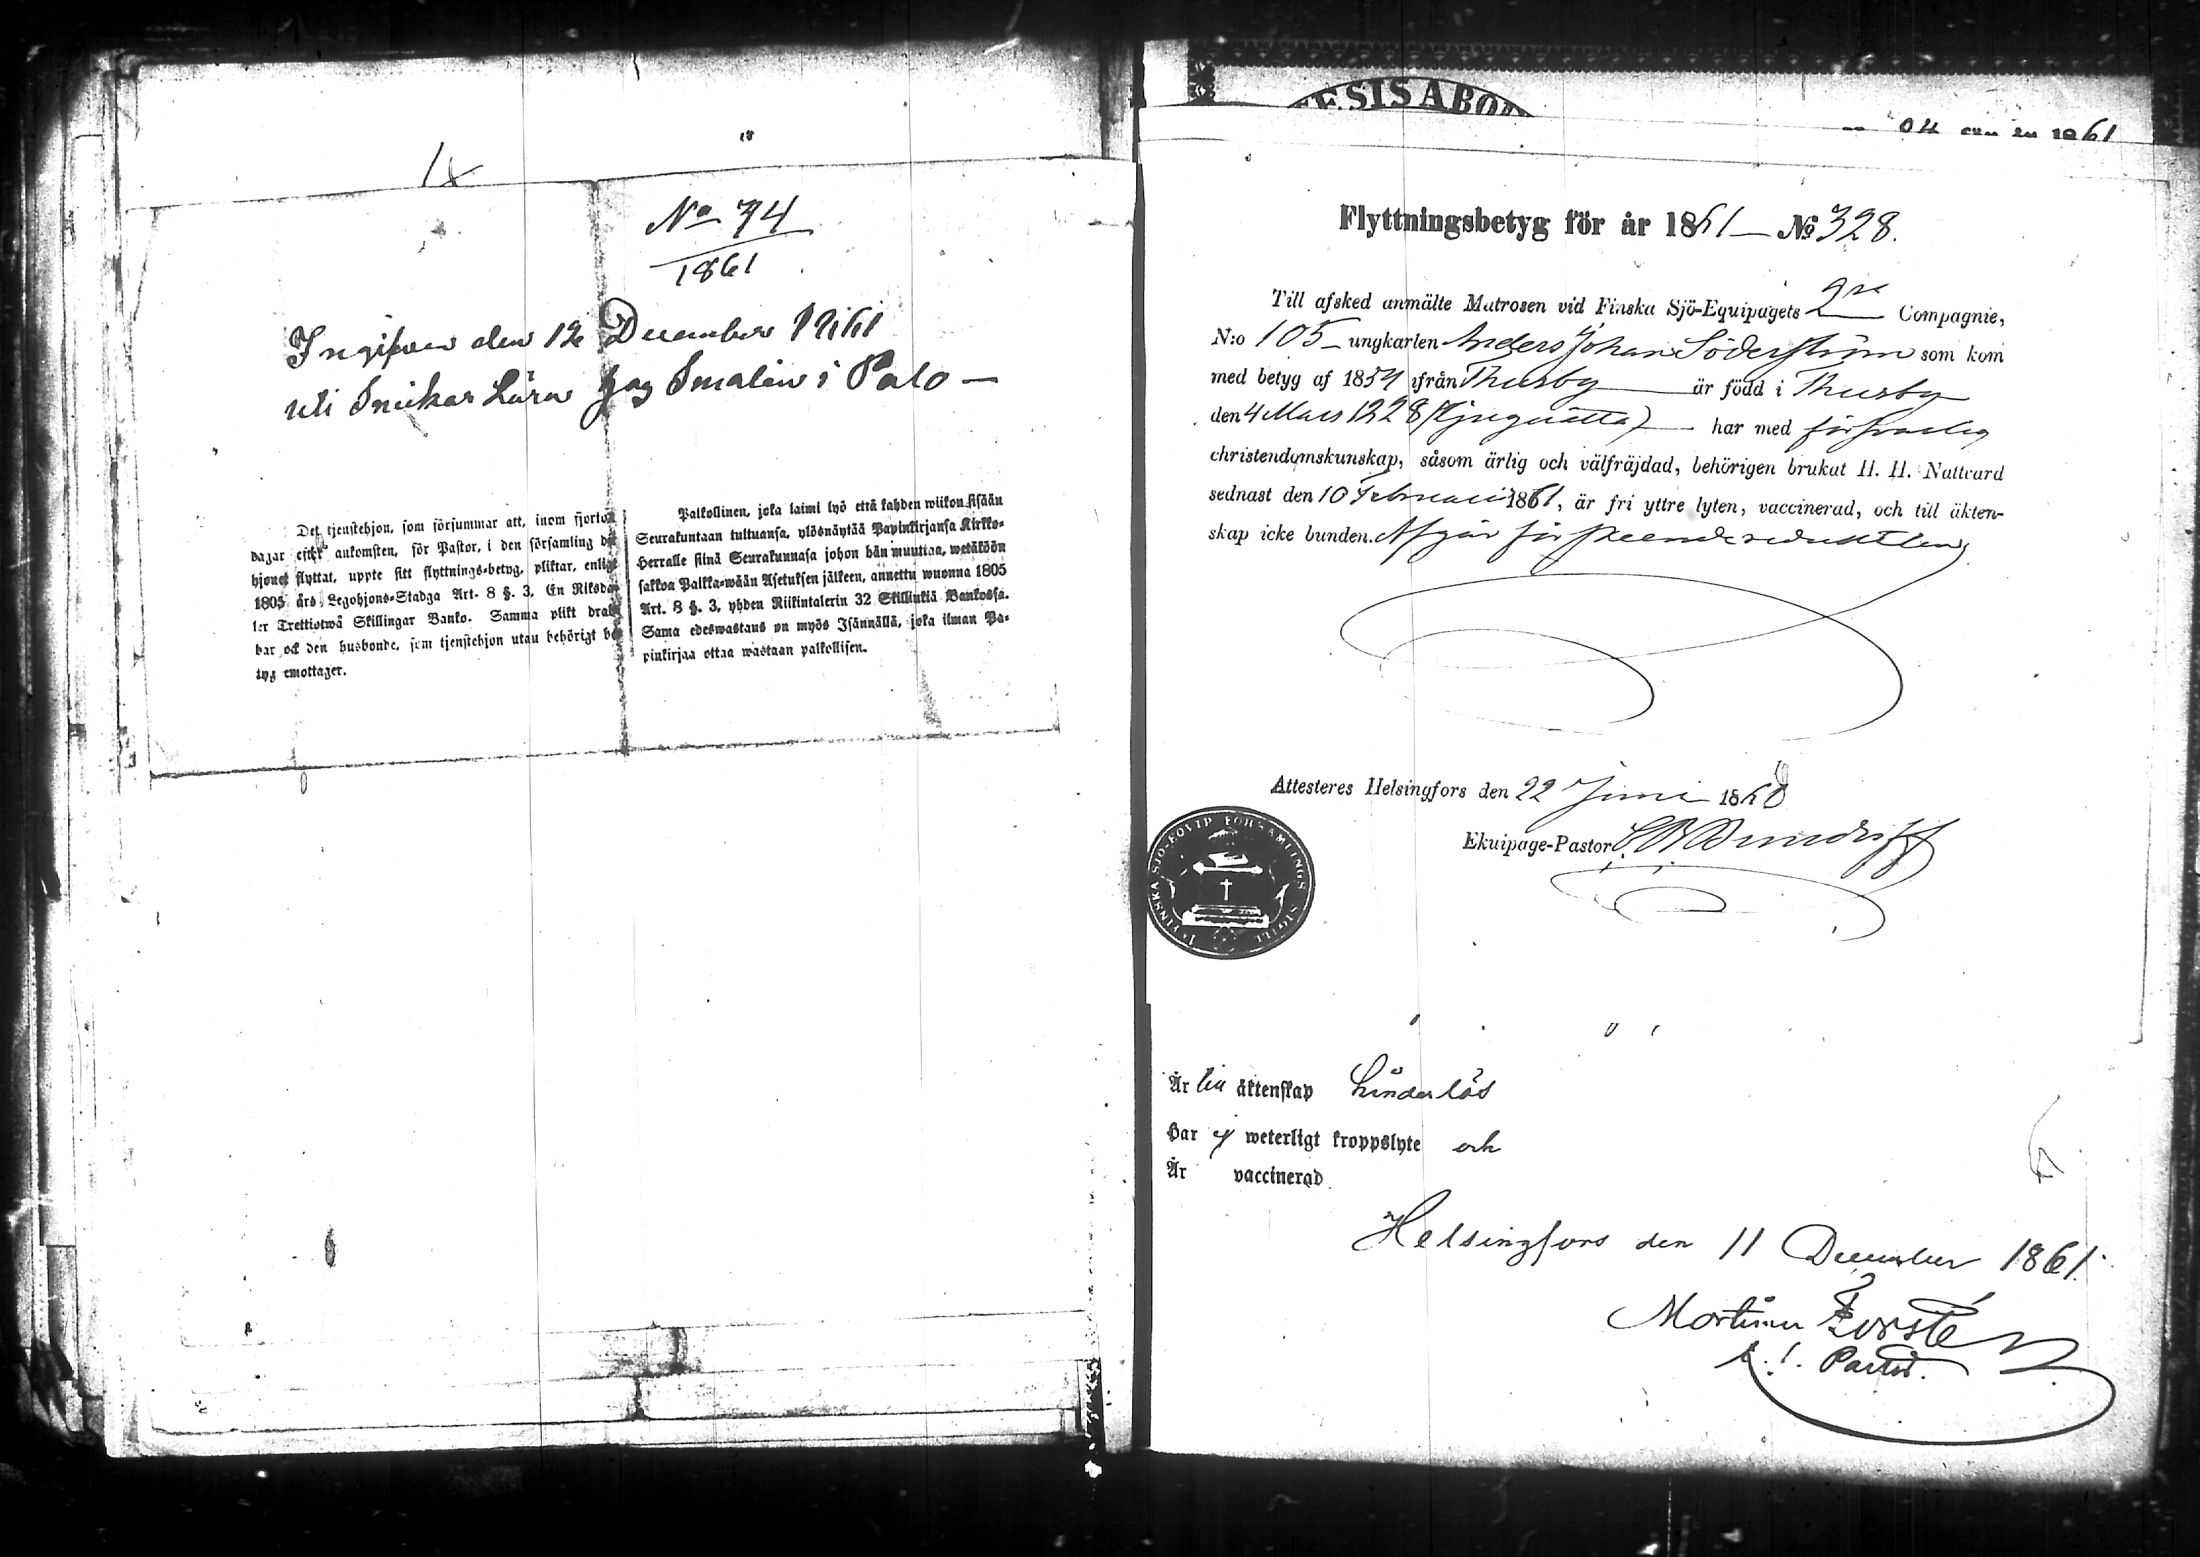 No 74
1861
Ingifven den 12 December 1861
uti Snickar Lära hag Smalén i Palo —
Det tjenstehjon, som försummar att, inom fjorton
dagar efter ankomsten, för Pastor, i den församling dit
hjonet flyttat, uppte sitt flyttnings-betyg, pliktar, enligt
1805 års Legohjons-Stadga Art. 8 §. 3, En Riksda-
ler Trettiotwå Skillingar Banko. Samma plikt drab-
bar ock den husbonde, som tjenstehjon utan behörigt be-
tyg emottager.
Palkollinen, joka laimi lyö että kahden wiikon sisään
Seurakuntaan tultuansa, ylösnäytää Papinkirjansa Kirkko-
Herralle siinä Seurakunnasa johon hän muuttaa, wetäköön
sakkoa Palkka-wään Asetuksen jälkeen, annettu wuonna 1805
Art. 8 §. 3, yhden Riikintalerin 32 Skillinkiä Bankossa.
Sama edeswastaus on myös Isännällä, joka ilman Pa-
pinkirjaa ottaa wastaan palkollisen.
ESIS ABO
1861
Flyttningsbetyg för år 1861 — No 328.
Till afsked anmälte Matrosen vid Finska Sjö-Equipagets 2ra Compagnie,
N:o 105 — ungkarlen Anders Johan Söderström som kom
med betyg af 1854 ifrån Thusby — är född i Thusby
den 4 Mars 1828 — har med försvarlig
christendomskunskap, såsom ärlig och välfräjdad, behörigen brukat H. H. Nattvard
sednast den 10 Februari 1861, är fri yttre lyten, vaccinerad, och till äkten-
skap icke bunden. Afgår för skeende reduktion.
Attesteres Helsingfors den 22 Juni 186
Ekuipage-Pastor
FINSKA SJÖ-EQVIP FÖRSAMLINGS SIGILL
Är till äktenskap hinderlös
Har ej weterligt kroppslyte och
Är vaccinerad
Helsingfors den 11 December 1861.
Mortimer Forstén
Pastor.